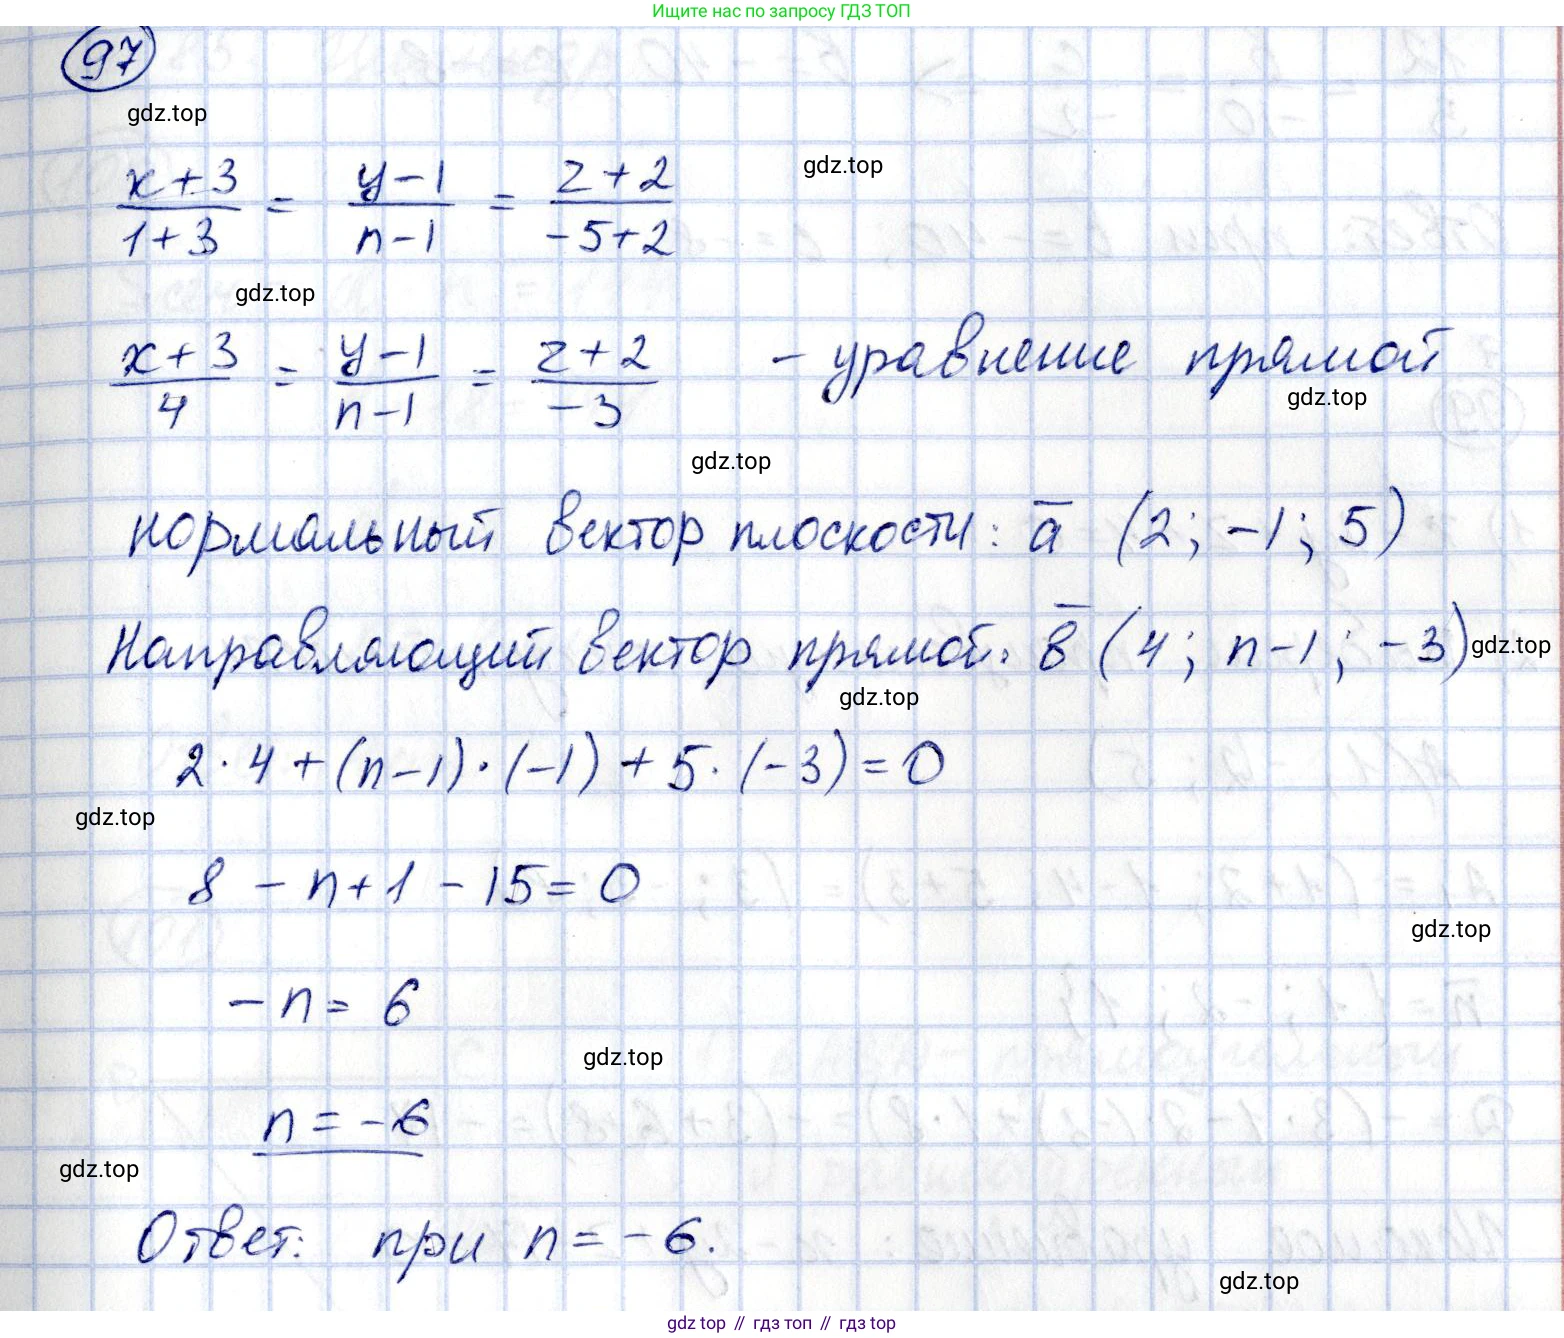 Ищите нас по запросу ГДЗ ТОП
97
gdz.top
x+3/1+3 = y-1/n-1 = z+2/-5+2
gdz.top
gdz.top
x+3/4 = y-1/n-1 = z+2/-3 - уравнение прямой
gdz.top
gdz.top
нормальный вектор плоскости: a̅ (2; -1; 5)
Направляющий вектор прямой: в̅ (4; n-1; -3)
gdz.top
gdz.top
2·4+(n-1)·(-1)+5·(-3)=0
gdz.top
8-n+1-15=0
gdz.top
-n= 6
gdz.top
n=-6
gdz.top
Ответ: при n=-6.
gdz.top
gdz top // гдз топ // гдз top